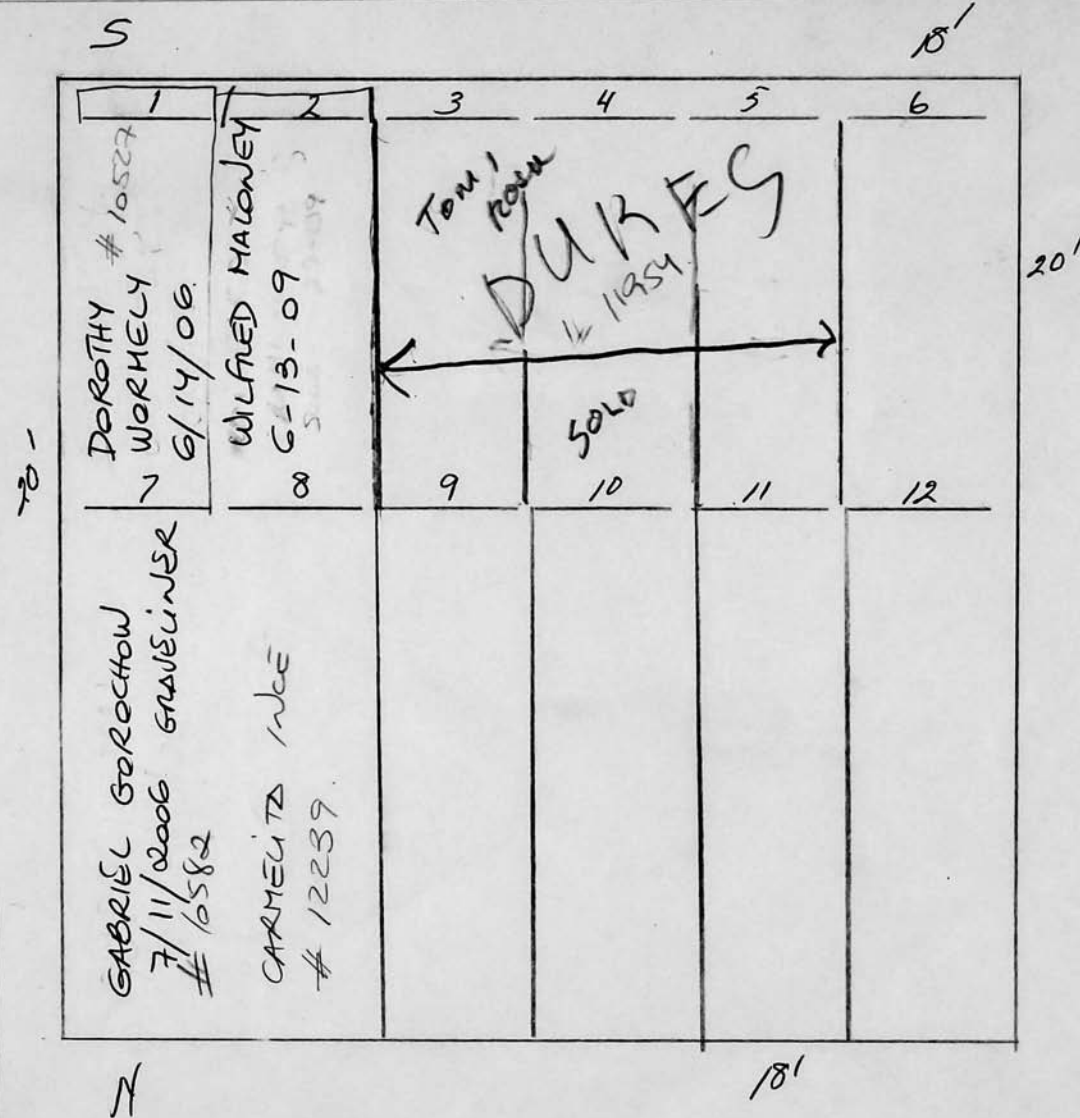 S
18'
1
2
3
4
5
6
DOROTHY # 10527
WORMELY
6/14/06
WILFRED MALONEY
6-13-09
TOM !
DURES
11954
SOLD
20'
20
7
8
9
10
11
12
GABRIEL GOROCHOW
7/11/2006 GRAVELINER
# 10582
CARMELITA INCE
# 12239.
N
18'